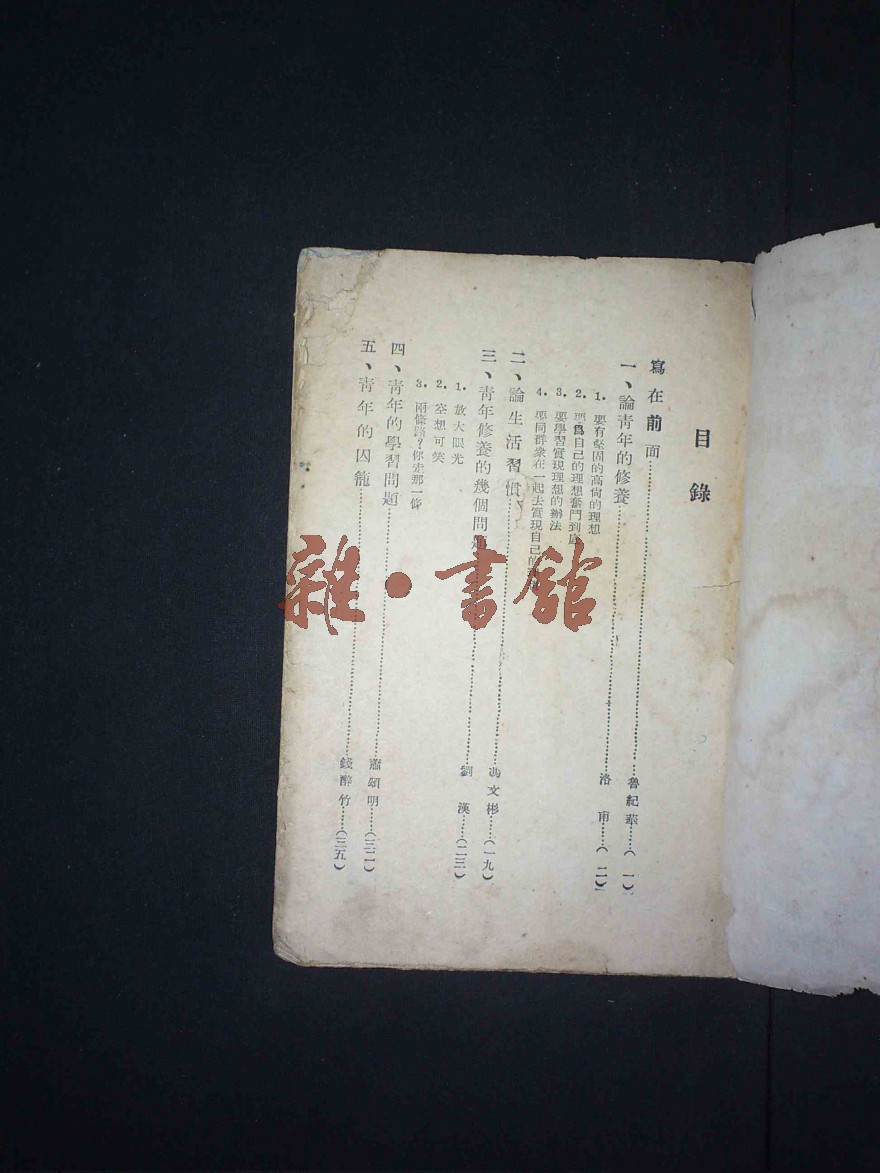 目錄
寫在前面……魯紀華……(一)
一、論青年的修養……洛甫……(二)
1. 要有堅固的高尚的理想
2. 要爲自己的理想奮鬥到底
3. 要學習實現理想的辦法
4. 要同群衆在一起去實現自己的理
二、論生活習慣……馮文彬……(一九)
三、青年修養的幾個問題……劉漢……(二三)
1. 放大眼光
2. 空想可笑
3. 兩條路？你走那一條
四、青年的學習問題……蕭頌明……(三二)
五、青年的囚籠……錢醉竹……(三五)
雜·書舘